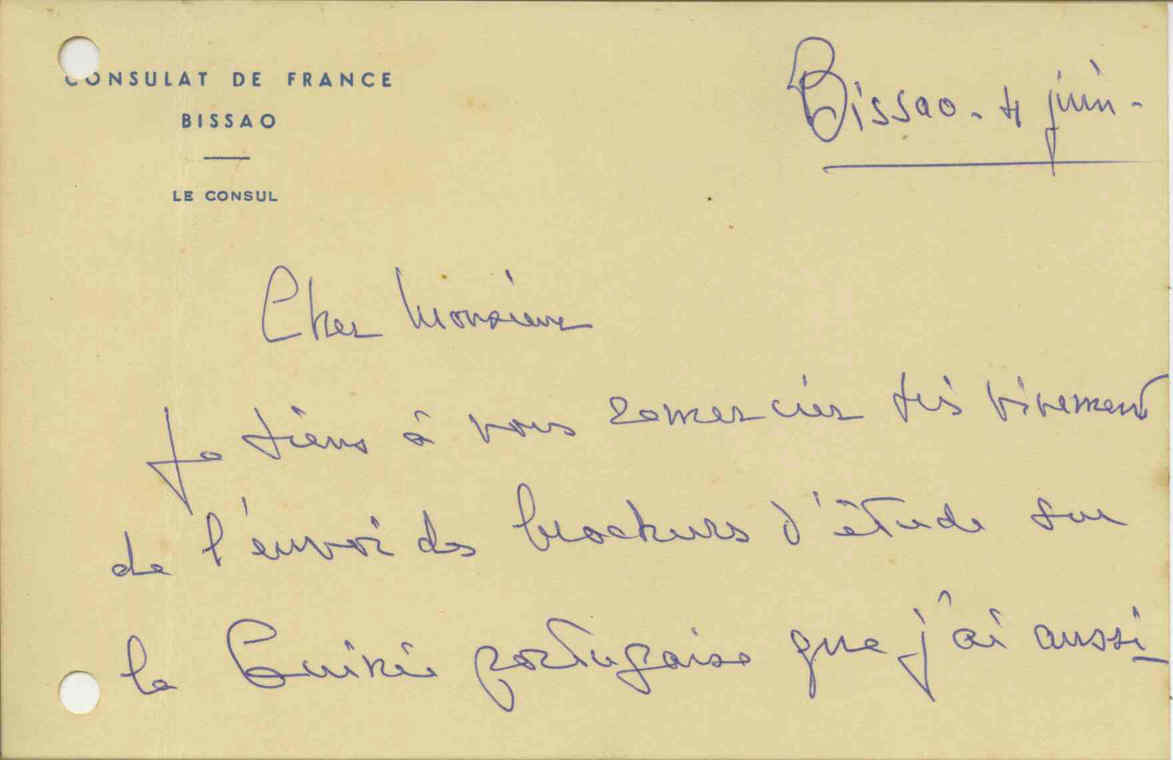 CONSULAT DE FRANCE
BISSAO
LE CONSUL
Bissao - 4 juin -
Cher Monsieur
Je tiens à vous remercier très vivement
de l'envoi des brochures d'étude sur
la Guinée portugaise que j'ai aussi